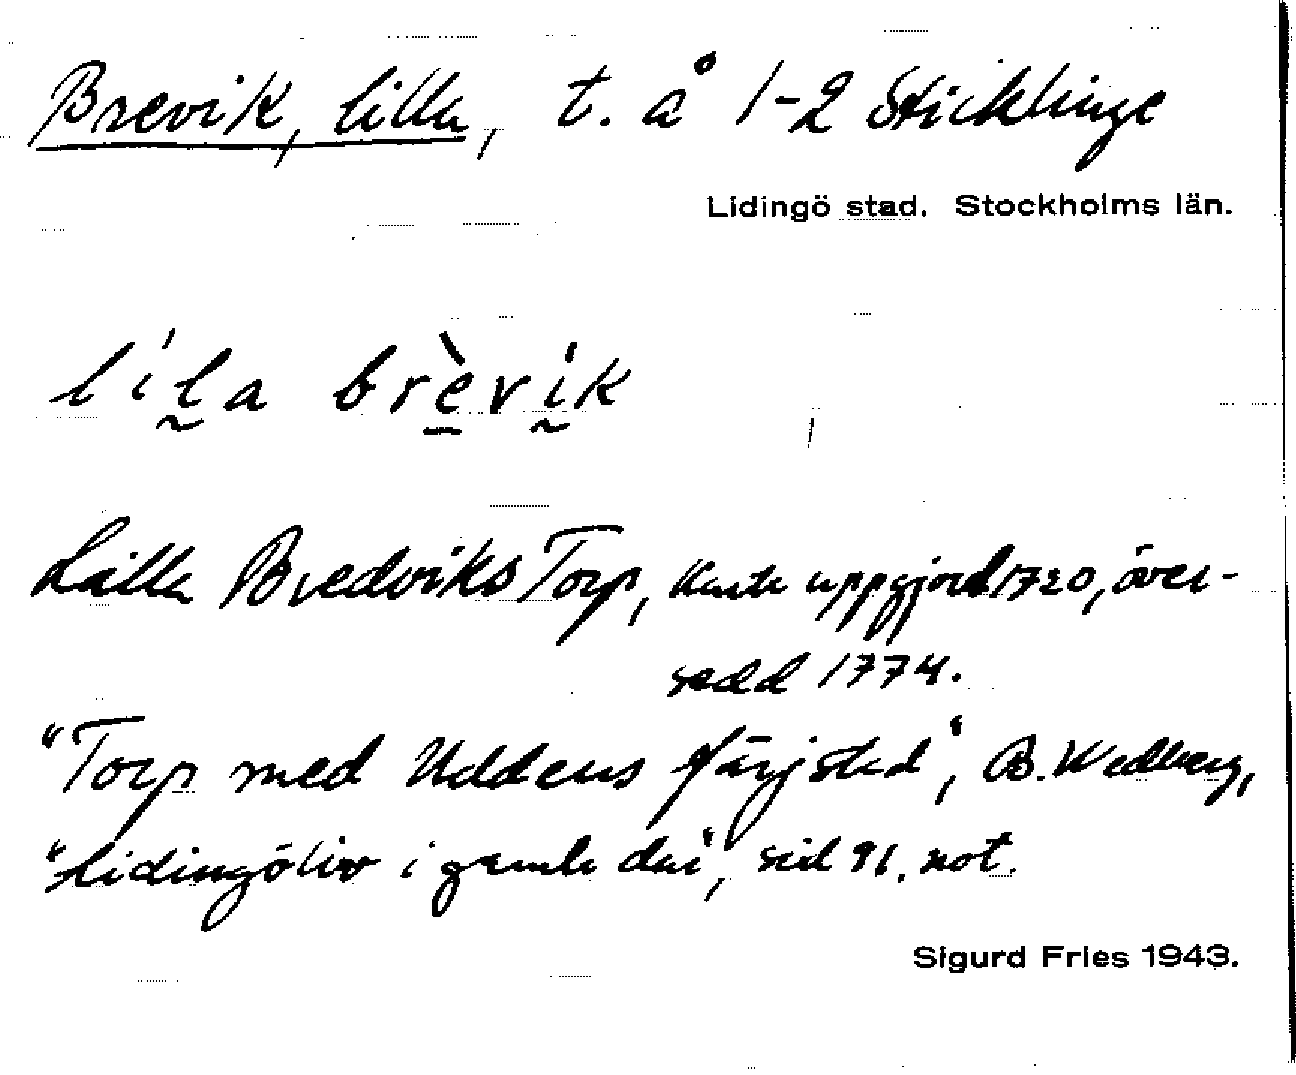 Brevik, lilla, t. å 1-2 Sticklinge
Lidingö stad. Stockholms län.
lila brèvik
Lilla Bredviks Torp, Karta uppgjord 1720, över-
sedd 1774.
"Torp med Uddens färjstad", B. Wedberg,
"Lidingöliv i gamla dar", sid 91, not.
Sigurd Fries 1943.